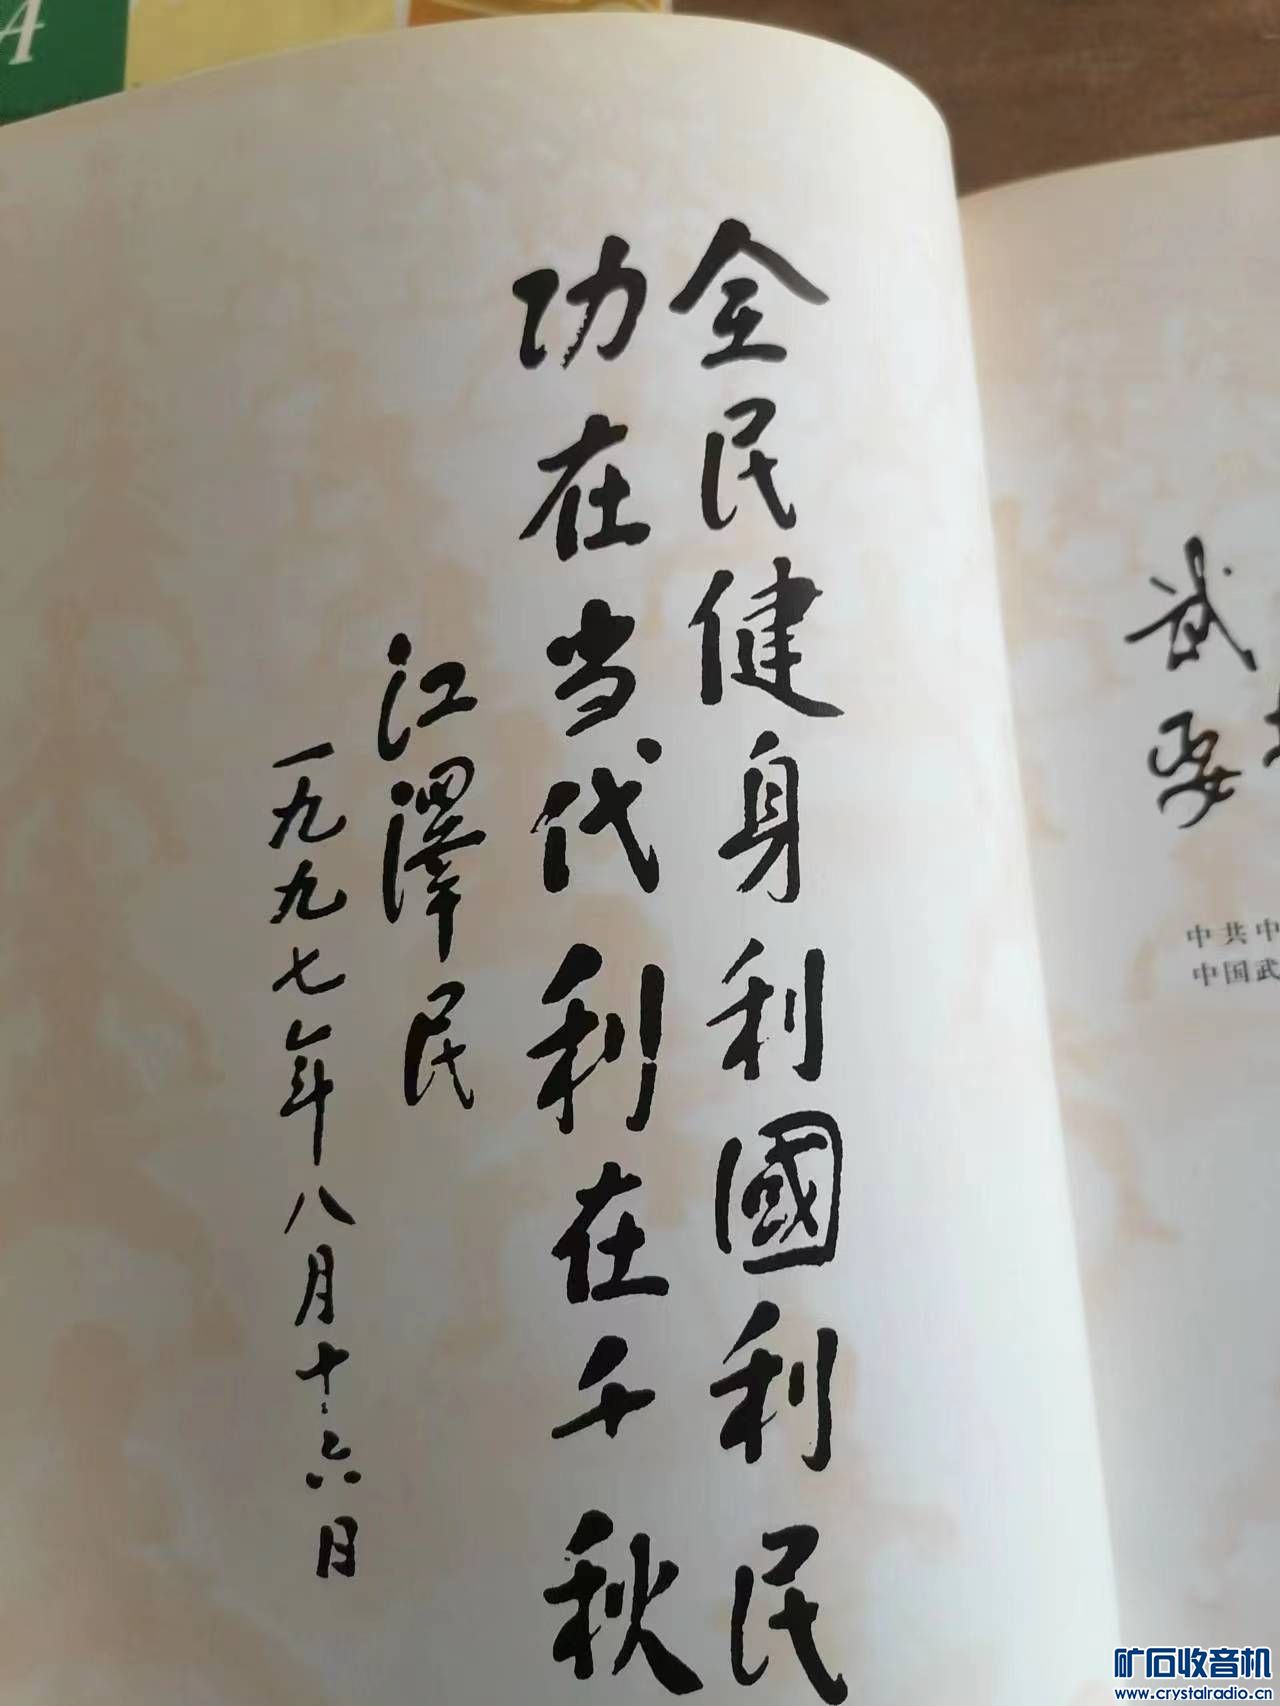 全民健身利國利民
功在当代利在千秋
江澤民
一九九七年八月十六日
武
要
中共中
中国武
A
矿石收音机
www.crystalradio.cn